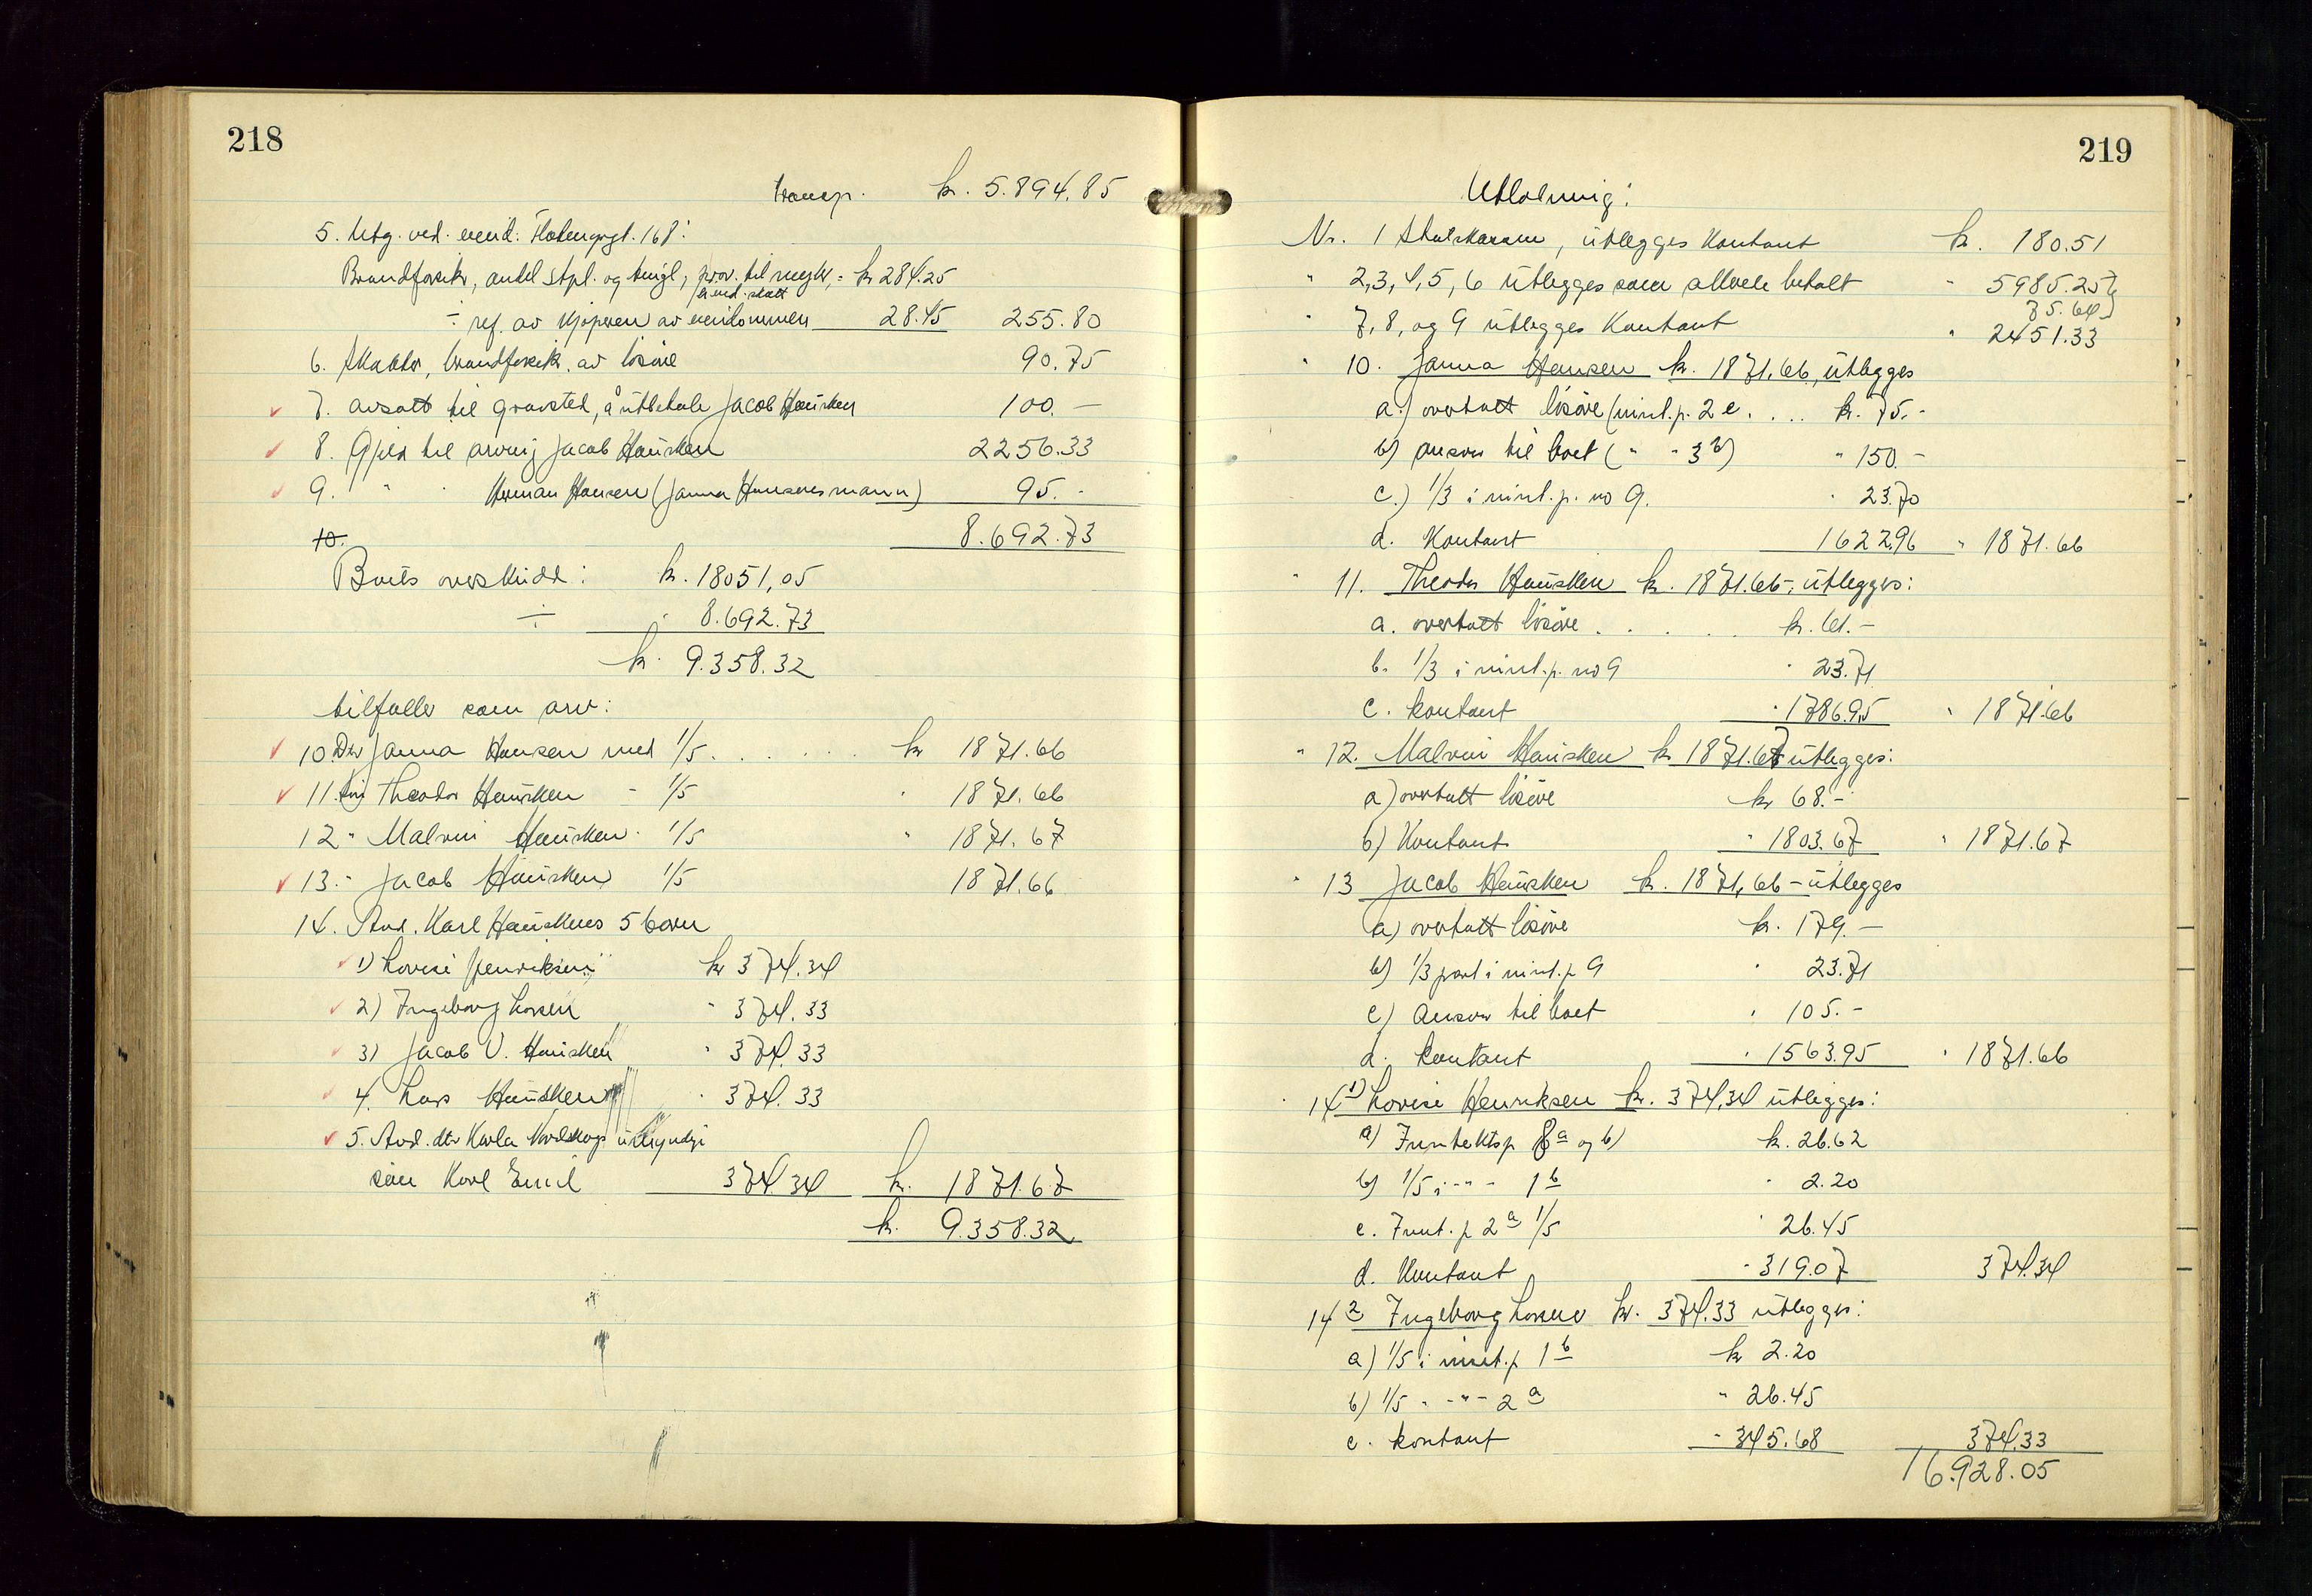 218
transp. kr. 5.894,85
5. Utg. ved. eiend.
Brandforsik, andel stpl. og tingl, prov. til megler, = kr 284.25
eiend. skatt
÷ ref. av kjøperen av eiendommen 28.45 255.80
6. Skatter, brandforsik. av løsøre 90.75
7. avsatt til gravsted, å utbetale Jacob Hausken 100.—
8. Gjeld til arving Jacob Hausken 2256.33
9. " " Herman Hansen (Janna Hansens mann) 95.-
10. 8.692.73
Boets overskudd: kr. 18051,05
÷ " 8.692.73
kr. 9.358.32
tilfaller som arv:
10. Dtr Janna Hansen med 1/5 . . . . . kr 1871.66
11. Theodor Hausken - 1/5 " 1871.66
12 " Malvin Hausken - 1/5 " 1871.67
13. - Jacob Hausken 1/5 1871.66
14. Avd. Karl Hauskens 5 barn
1) Lovise Henriksen kr 374.34
2) Ingeborg Larsen " 374.33
3) Jacob V. Hausken " 374.33
4. Lars Hausken " 374.33
5. Avd. dtr Karla umyndige
søn Karl Emil 374.34 kr. 1871.67
kr. 9.358.32
219
Utlodning:
Nr. 1 Skatekassen, utlegges kontant kr. 180.51
" 2,3,4,5,6 utlegges som allerede betalt " 5985.25
" 7,8, og 9 utlegges kontant 75.64
" 2451.33
" 10. Janna Hansen kr. 1871,66, utlegges
a.) overtatt løsøre (innt.p. 2 e. . . . kr. 75.-
b) ansvar til boet ( " " 3 b) " 150.-
c.) 1/3 i innt.p. no 9. " 23.70
d. Kontant 1622.96 " 1871.66
" 11. Theodor Hausken kr. 1871.66 - utlegges:
a. overtatt løsøre . . . . . kr. 61.-
b. 1/3 i innt.p. no 9 " 23.71
c. kontant " 1786.95 " 1871.66
" 12. Malvin Hausken kr 1871.67 utlegges:
a) overtatt løsøre kr 68.-
b) Kontant " 1803.67 " 1871.67
" 13 Jacob Hausken kr. 1871,66 - utlegges
a) overtatt løsøre kr. 179.—
b) 1/3 part i innt.p 9 " 23.71
c) Ansvar til boet " 105.-
d. kontant " 1563.95 " 1871.66
" 14 1) Lovise Henriksen kr. 374,34 utlegges:
a) Inntektsp 8 a og b) kr. 26.62
b) 1/5 i - " - 1 b " 2.20
c. Innt.p 2 a 1/5 " 26.45
d. Kontant " 319.07 374.34
14 2 Ingeborg Larsen kr. 374.33 utlegges:
a) 1/5 i innt.p 1 b kr 2.20
b) 1/5 - - " - 2 a " 26.45
c. kontant " 345.68 374.33
16.928.05